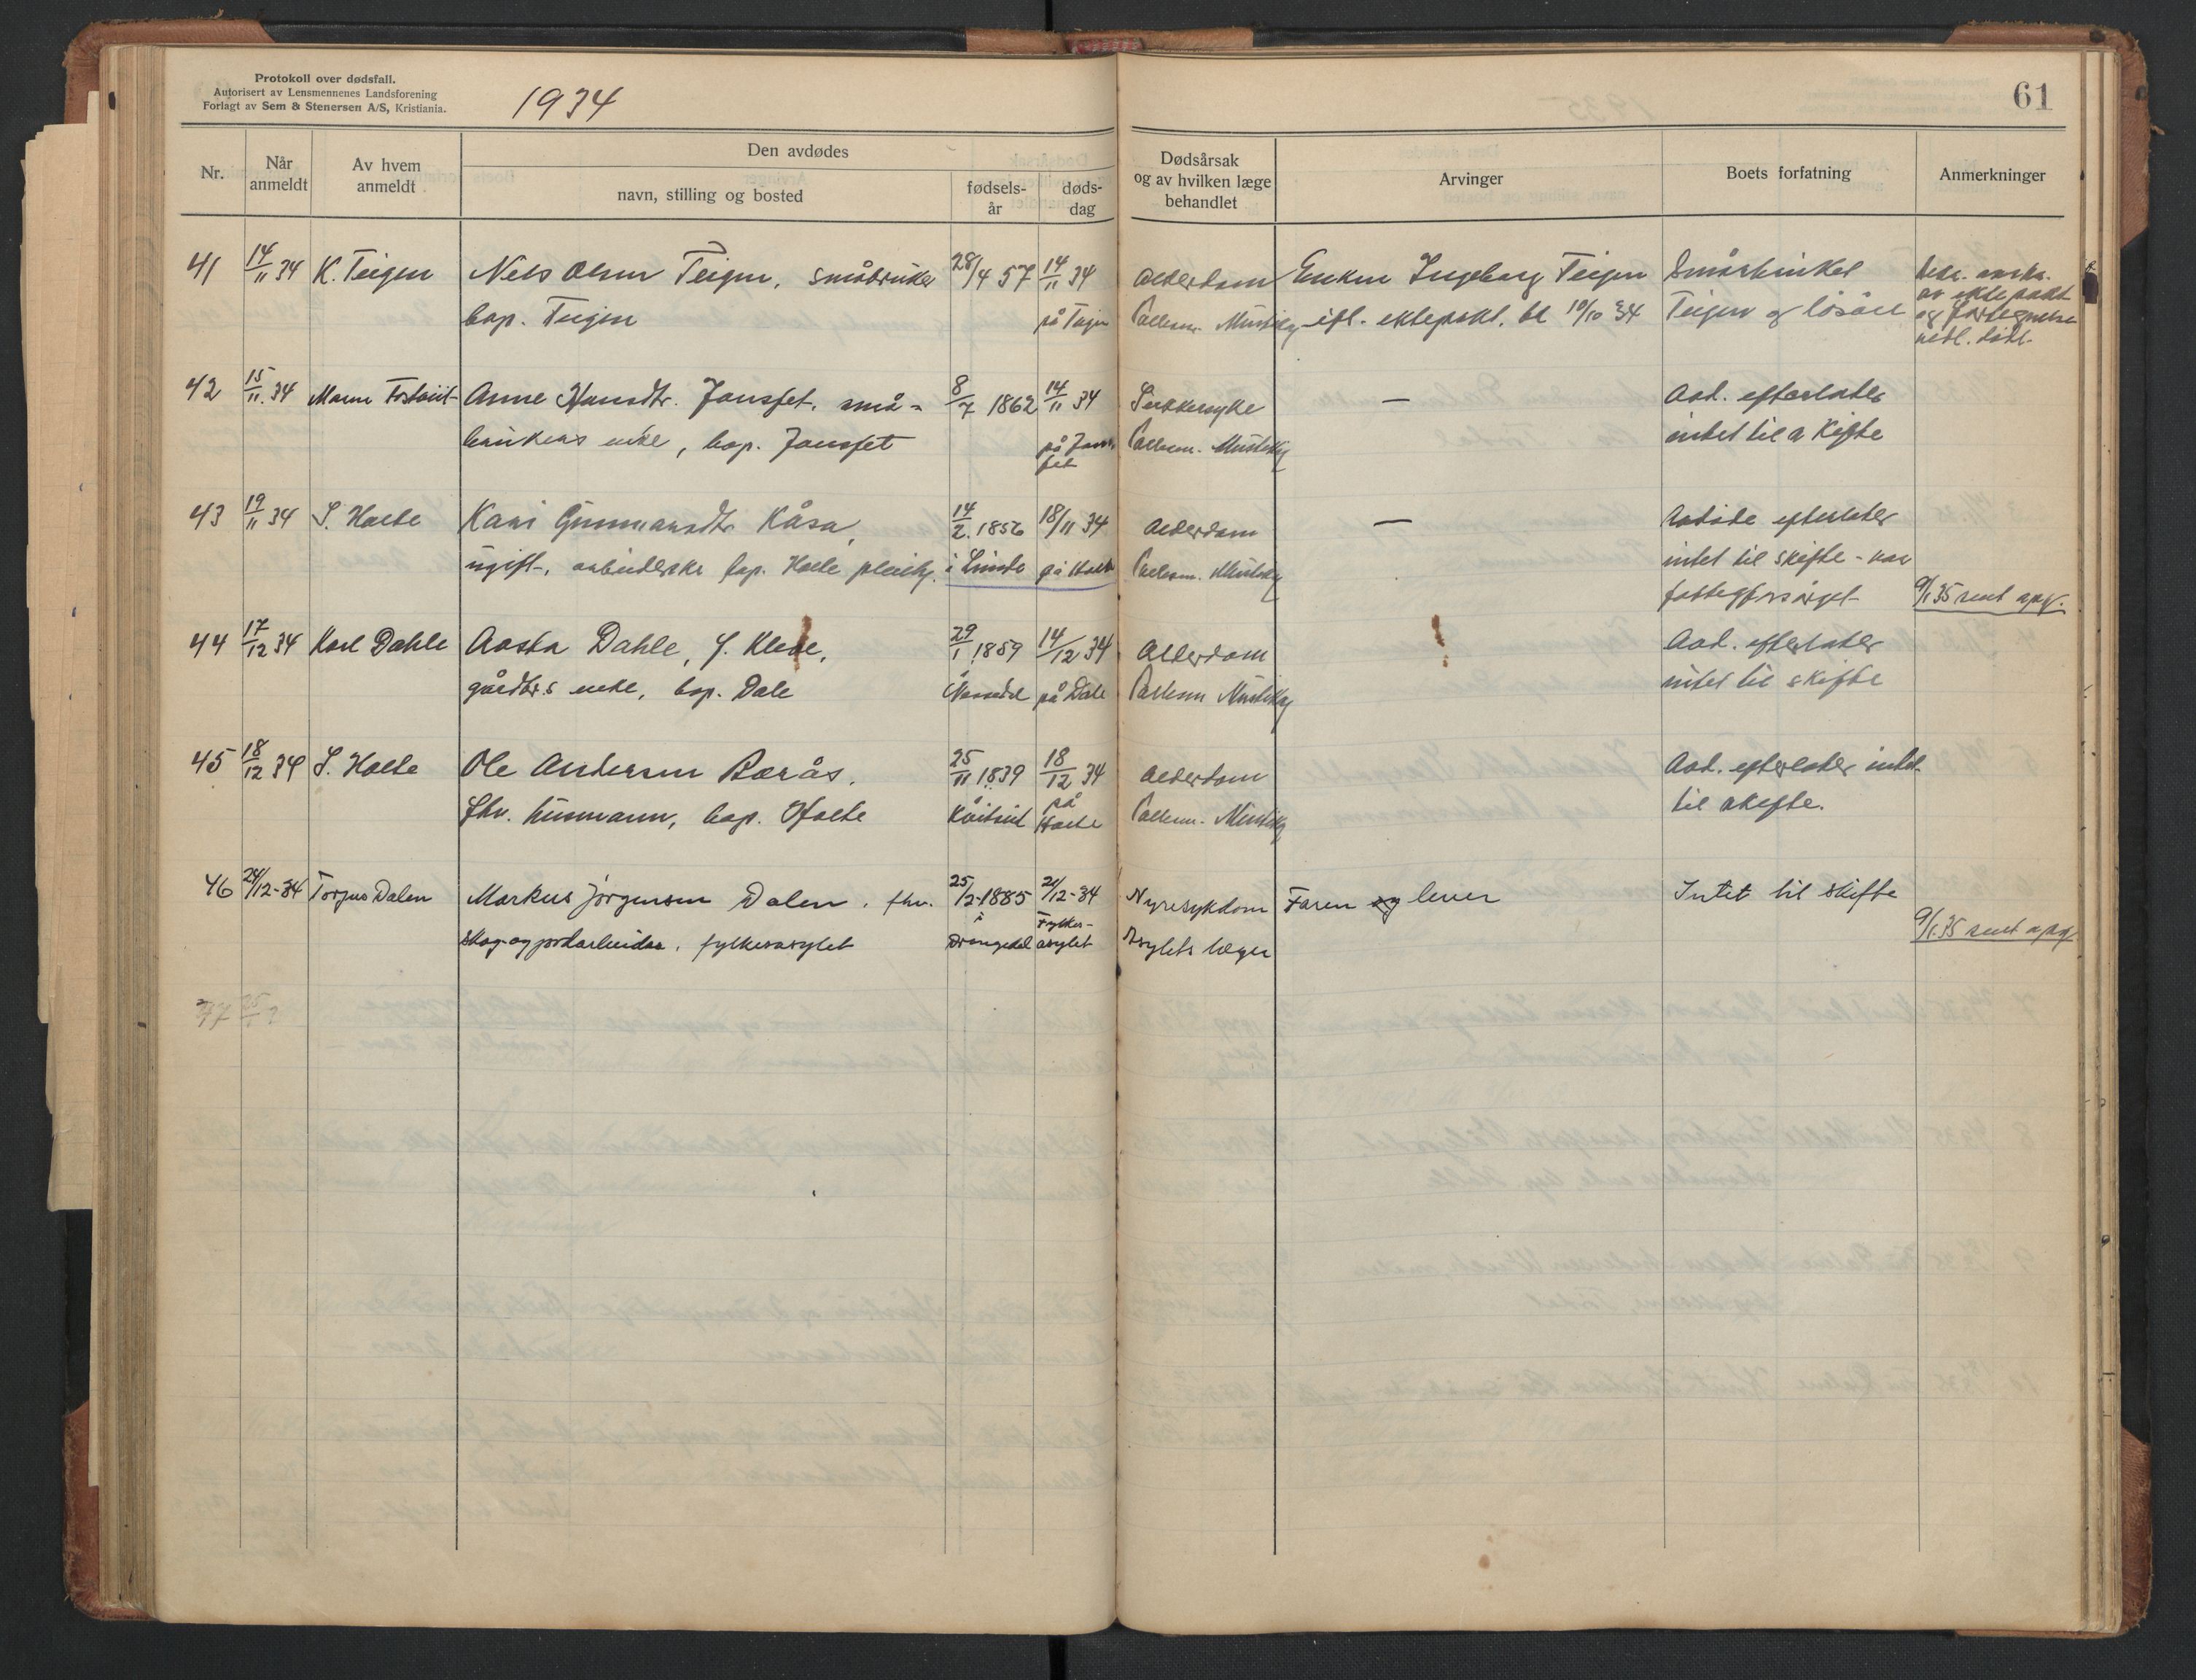 Protokoll over dødsfall.
Autorisert av Lensmennenes Landsforening
Forlagt av Sem & Stenersen A/S, Kristiania.
1934
61
Nr.
Når anmeldt
Av hvem anmeldt
Den avdødes
navn, stilling og bosted
fødsels-år
døds-dag
Dødsårsak
og av hvilken læge
behandlet
Arvinger
Boets forfatning
Anmerkninger
41 14/11 34 K. Teigen Nels Olsen Teigen, småbruker 28/4 57 14/11 34 Alderdom Enken Ingeborg Teigen Småbruket
bop. Teigen på Teigen ifl. ektepakt. 10/10 34 Teigen og løsøre
av ektepakt
og fortegnelse
42 15/11 34 Anne Hansdtr. Jonsfet, små- 8/7 1862 14/11 34 Sukkersyke — Avd. efterlater
brukers enke, bop. Jonsfet på Jons-fet intet til skifte
43 19/11 34 S. Holte Kari Gunnarsdtr. Kåsa, 14/2 1856 18/11 34 Alderdom — Avdøde efterlater
ugift, arbeiderske bop. Holte pleiehj. i Lunde på Holte intet til skifte - var
fattigforsørget 9/1 35 sent opg.
44 17/12 34 Karl Dahle Aaste Dahle, f. Kleve, 29/1 1859 14/12 34 Alderdom Avd. efterlater
gårdbr.s enke, bop. Dale på Dale intet til skifte
45 18/12 34 S. Holte Ole Andersen Borås, 25/11 1839 18/12 34 Alderdom Avd. efterlater intet
fhv. husmann, bop. Holte på Holte til skifte.
46 24/12-34 Torjus Dalen Markus Jørgensen Dalen, fhv. 25/2-1885 21/12-34 Nyresykdom Faren og lever Intet til skifte
skog- og jordarbeider, fylkesasylet i Drangedal Fylkes-asylet Asylets læger 9/1 35 sent opg.
47